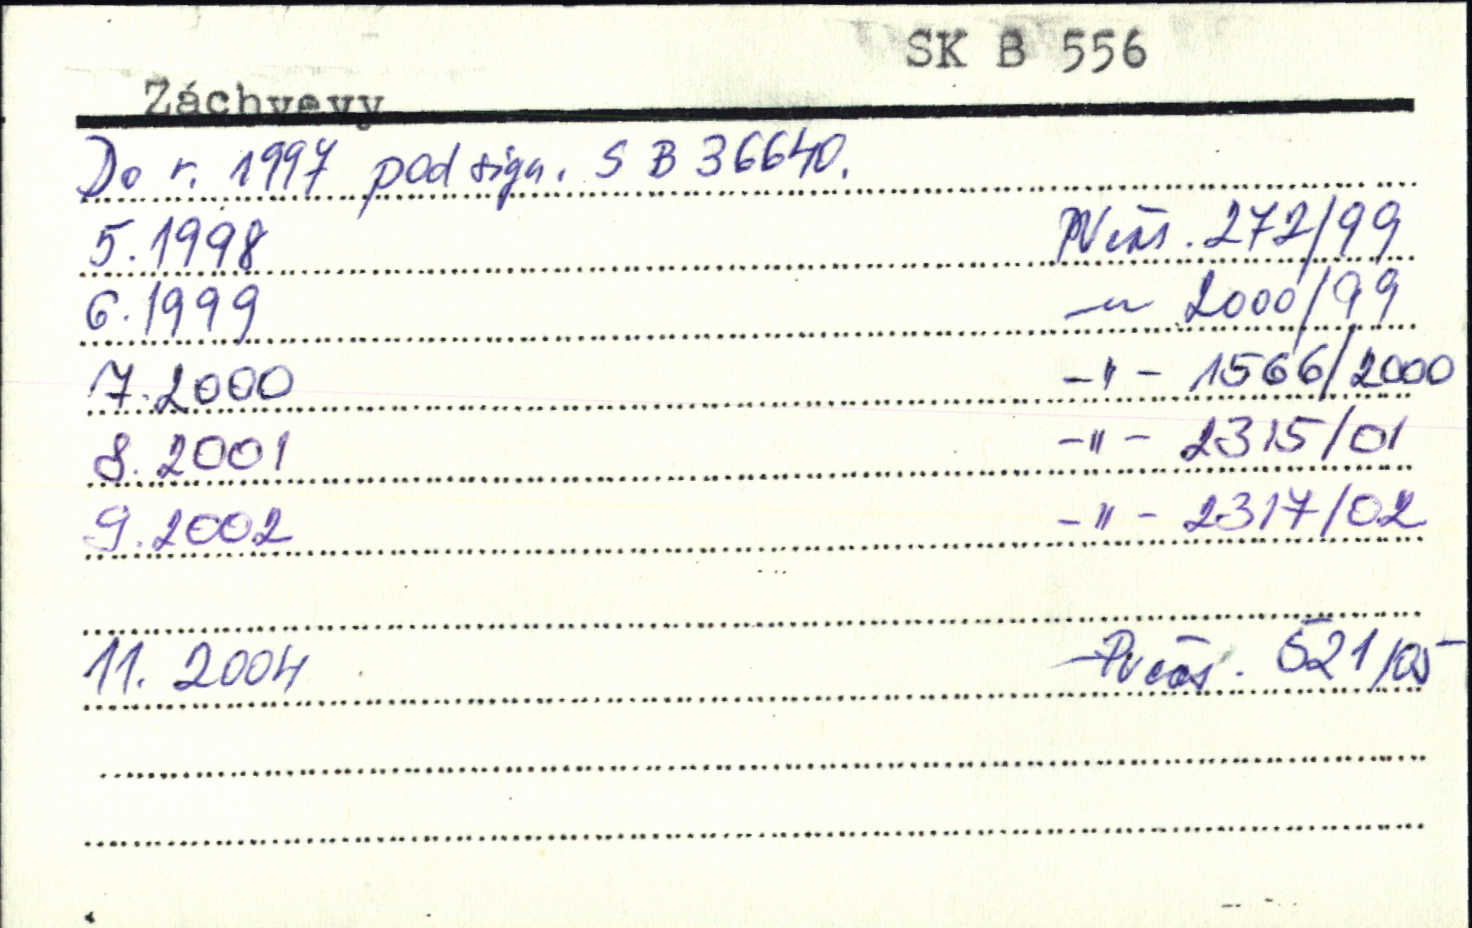 SK B 556
Záchvevy
Do r. 1997 pod sign. S B 36640.
5. 1998 PV čas. 272/99
6. 1999 –"– 2000/99
7. 2000 –"– 1566/2000
8. 2001 –"– 2315/01
9. 2002 –"– 2317/02
11. 2004 PV čas. 521/05